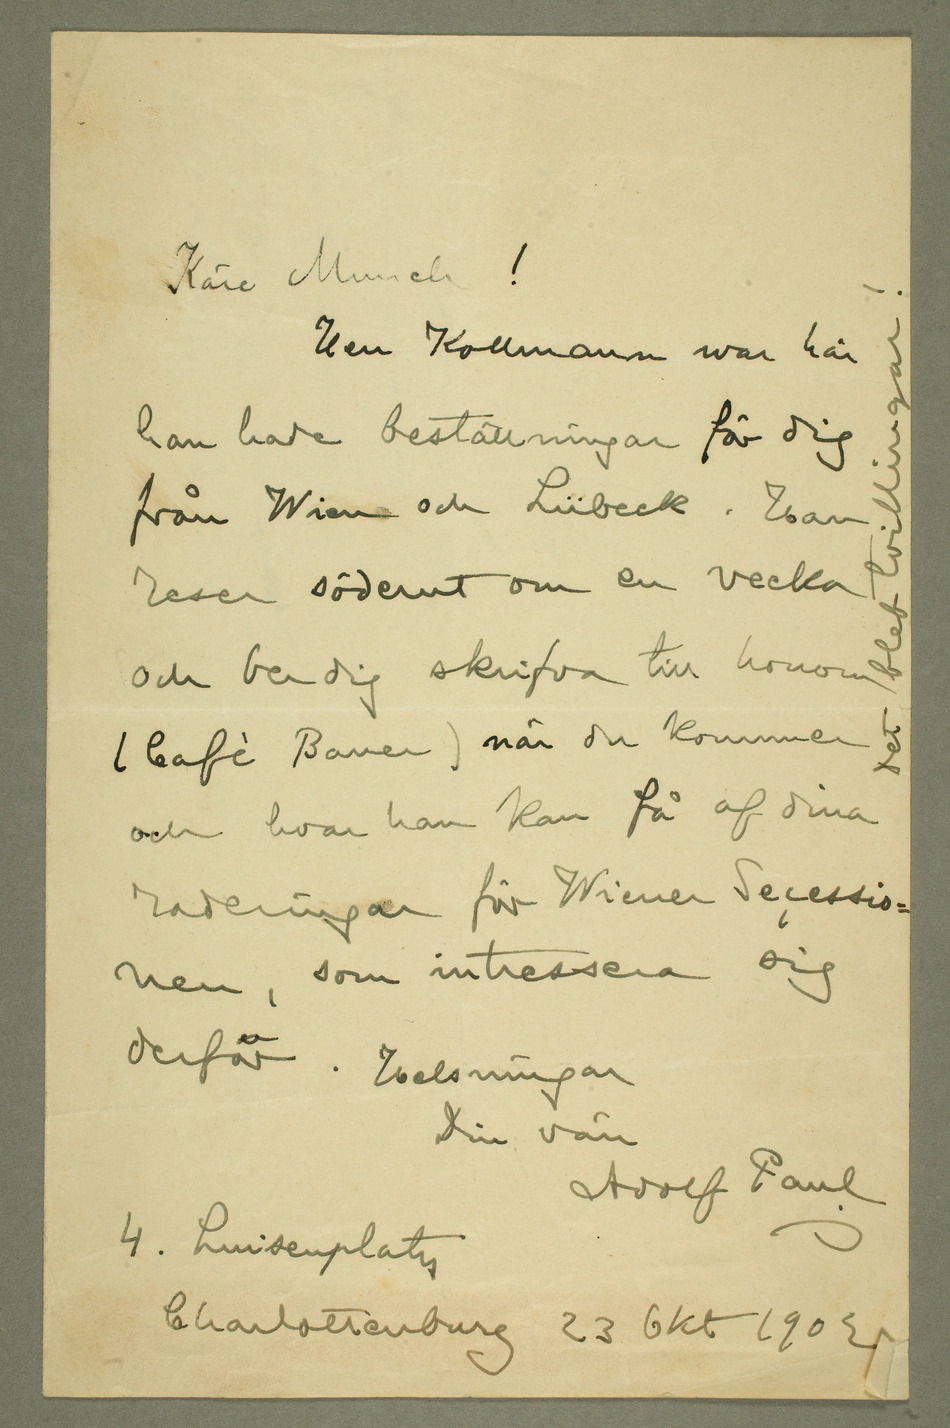 Käre Munch !
Herr Kollmann war här
han hade beställningar för dig
från Wien och Lübeck . Han
reser söderut om en vecka
och ber dig skrifva till honom
(Café Bauer) när du kommer
och hvar han kan få af dina
raderingar för Wiener Seçessio=
nen, som intressera sig
derför . Helsningar
Din vän
Adolf Paul
4. Luisenplatz
Charlottenburg 23 Okt 1902
Det blef tvillingar !